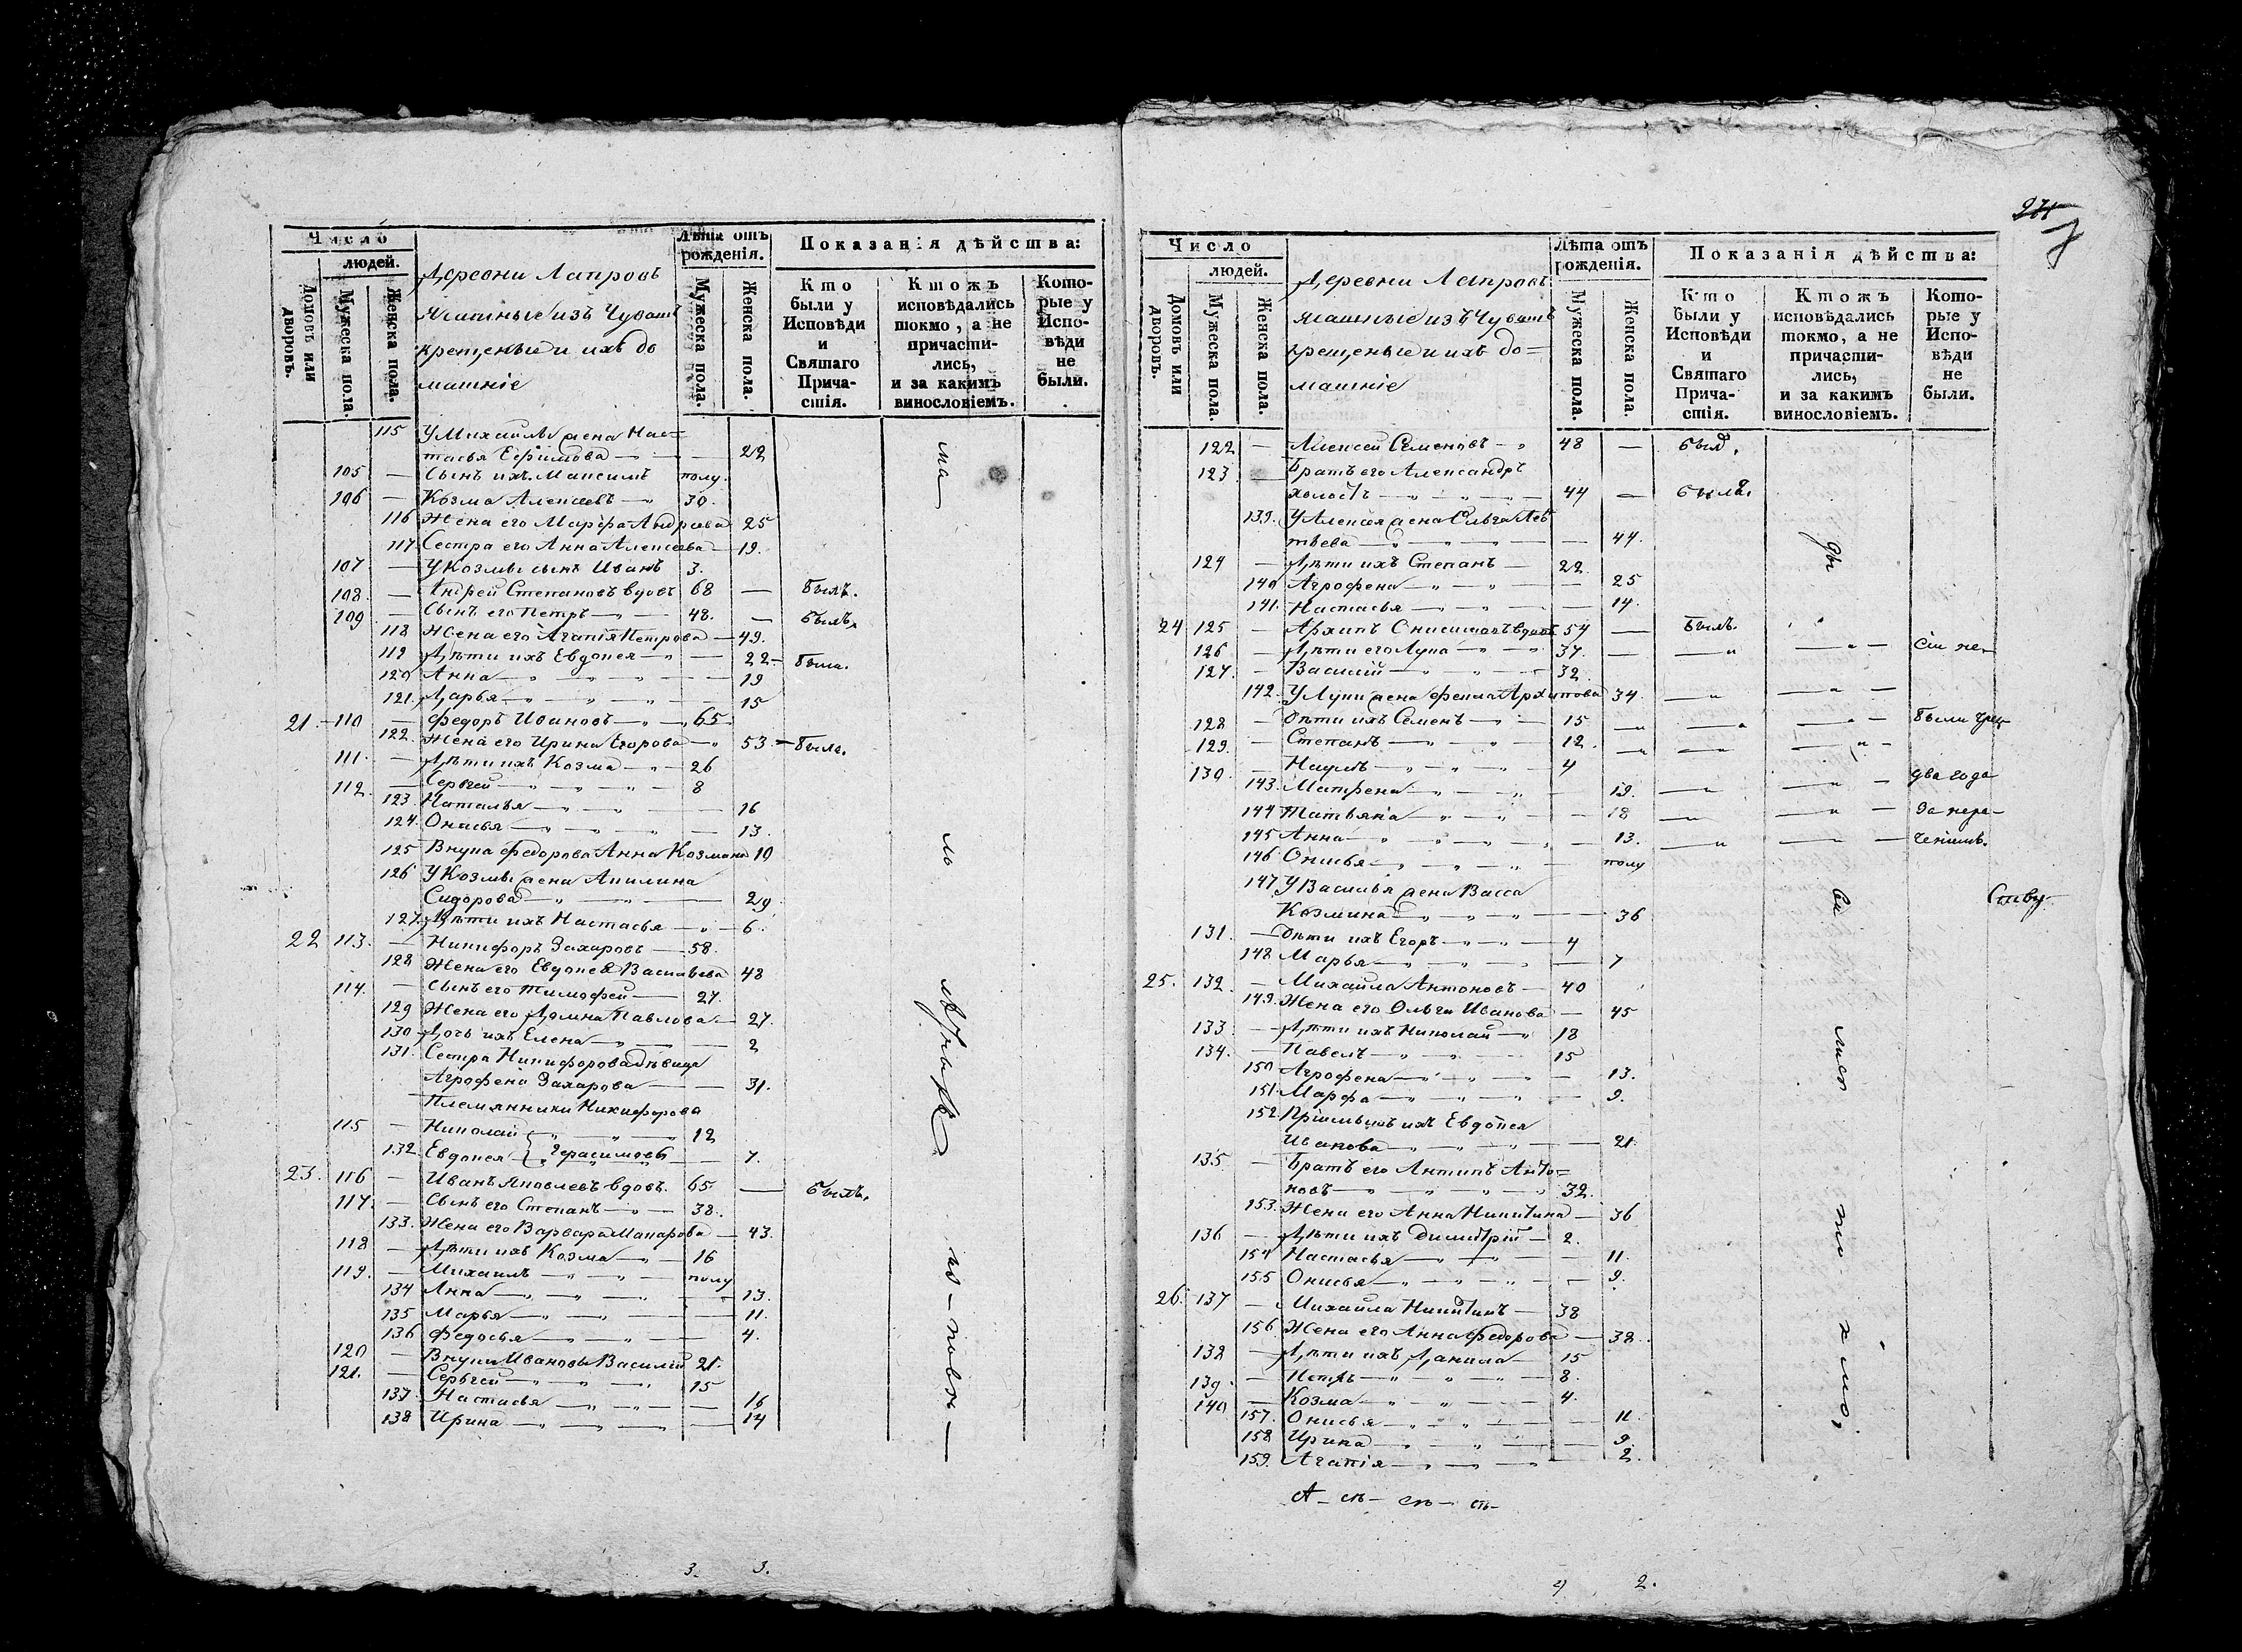 Число
людей.
Домовъ или дворовъ.
Мужеска пола.
Женска пола.
Деревни Лапровъ
Ясашные изъ Чувашъ
крещеные и ихъ до
машніе
Лѣта отъ рожденія.
Мужеска пола.
Женска пола.
Показанія дѣйства:
Кто были у Исповѣди и Святаго Причастія.
Ктожъ исповѣдались токмо, а не причастились, и за какимъ винословіемъ.
Которые у Исповѣди не были.
115 У Михайлы жена Нас=
тасья Ефимова 22
105 — Сынъ ихъ Максимъ полу.
106 — Козма Алексеевъ 30.
116 Жена его Марфа Андреева 25
117. Сестра его Анна Алексеева 19.
107 — У Козмы сынъ Иванъ 3.
108. — Андрей Степановъ вдовъ 68 — былъ.
109 — Сынъ его Петръ 48. — былъ.
118 Жена его Агапія Петрова 49.
119 Дѣти ихъ Евдокея 22 — была.
120 Анна 19
121. Дарья 15
21. 110 — Федоръ Ивановъ 65.
122. Жена его Ирина Егорова 53. — была.
111. — Дѣти ихъ Козма 26
112. — Сергей 8
123. Наталья 16
124. Онисья 13.
125 Внука Федорова Анна Козмина 10
126 У Козмы жена Акилина
Сидорова 29
127. Дѣти ихъ Настасья 6.
22 113. — Никифоръ Захаровъ 58.
128 Жена его Евдокея Васильева 48
114. — Сынъ его Тимофей 27.
129 Жена его Домна Павлова 27.
130 Дочь ихъ Елена 2
131. Сестра Никифорова дѣвица
Агрофена Захарова 31.
Племянники Никифорова
115 — Николай 12
132. Евдокея Герасимовы 7.
23. 116 — Иванъ Яковлевъ вдовъ. 65 — былъ.
117. — Сынъ его Степанъ 38.
133. Жена его Варвара Макарова 43.
118 — Дѣти ихъ Козма 16
119. — Михаилъ полу
134 Анна 13.
135 Марья 11.
136 Федосья 4.
120 — Внуки Ивановы Василій 21.
121. — Сергей 15
137. Настасья 16
138 Ирина 14
ма
ло
лѣтные
по-повн—
3. 3.
271
7
Число
людей.
Домовъ или дворовъ.
Мужеска пола.
Женска пола.
Деревни Лапровъ
ясашные изъ Чувашъ
крещеные и ихъ до=
машніе
Лѣта отъ рожденія.
Мужеска пола.
Женска пола.
Показанія дѣйства:
Кто были у Исповѣди и Святаго Причастія.
Ктожъ исповѣдались токмо, а не причастились, и за какимъ винословіемъ.
Которые у Исповѣди не были.
122 — Алексей Семеновъ 48 — былъ.
123 — Братъ его Александръ
холостъ 44 — былъ.
139. У Алексея жена Ольга
44.
124 — Дѣти ихъ Степанъ 22.
140 Агрофена 25
141. Настасья 14.
24 125 — Архипъ Онисимовъ вдовъ 54 — былъ.
126 — Дѣти его Лупа 37. Сіи не-
127. — Василій 32
142. У Лупы жена Фекла Архипова 34.
128 — Дѣти ихъ Семенъ 15 были чрез
129. — Степанъ 12.
130 — Наумъ 4 два года
143. Матрена 19.
144 Татьяна 18 за нера-
145 Анна 13. ченіемъ.
146 Онисья полу
147. У Василья жена Васса
Козмина 36
131. — Дѣти ихъ Егоръ 4
148 Марья 7
25. 132. — Михайла Антоновъ 40
149. Жена его Ольга Иванова 45
133. — Дѣти ихъ Николай 18
134. — Павелъ 15
150 Агрофена 13.
151. Марфа 9.
152. Евдокея
Иванова 21.
135 — Братъ его Антипъ Анто=
новъ 32.
153. Жена его Анна Никитина 36
136 — Дѣти ихъ Димитрій 2.
154 Настасья 11.
155 Онисья 9.
26. 137 — Михайла Никитинъ 38
156. Жена его Анна Федорова 38.
138 — Дѣти ихъ Данила 15
139. — Петръ 8.
140 — Козма 4.
157. Онисья 11.
158 Ирина 9.
159. Агапія 2.
ды
2.